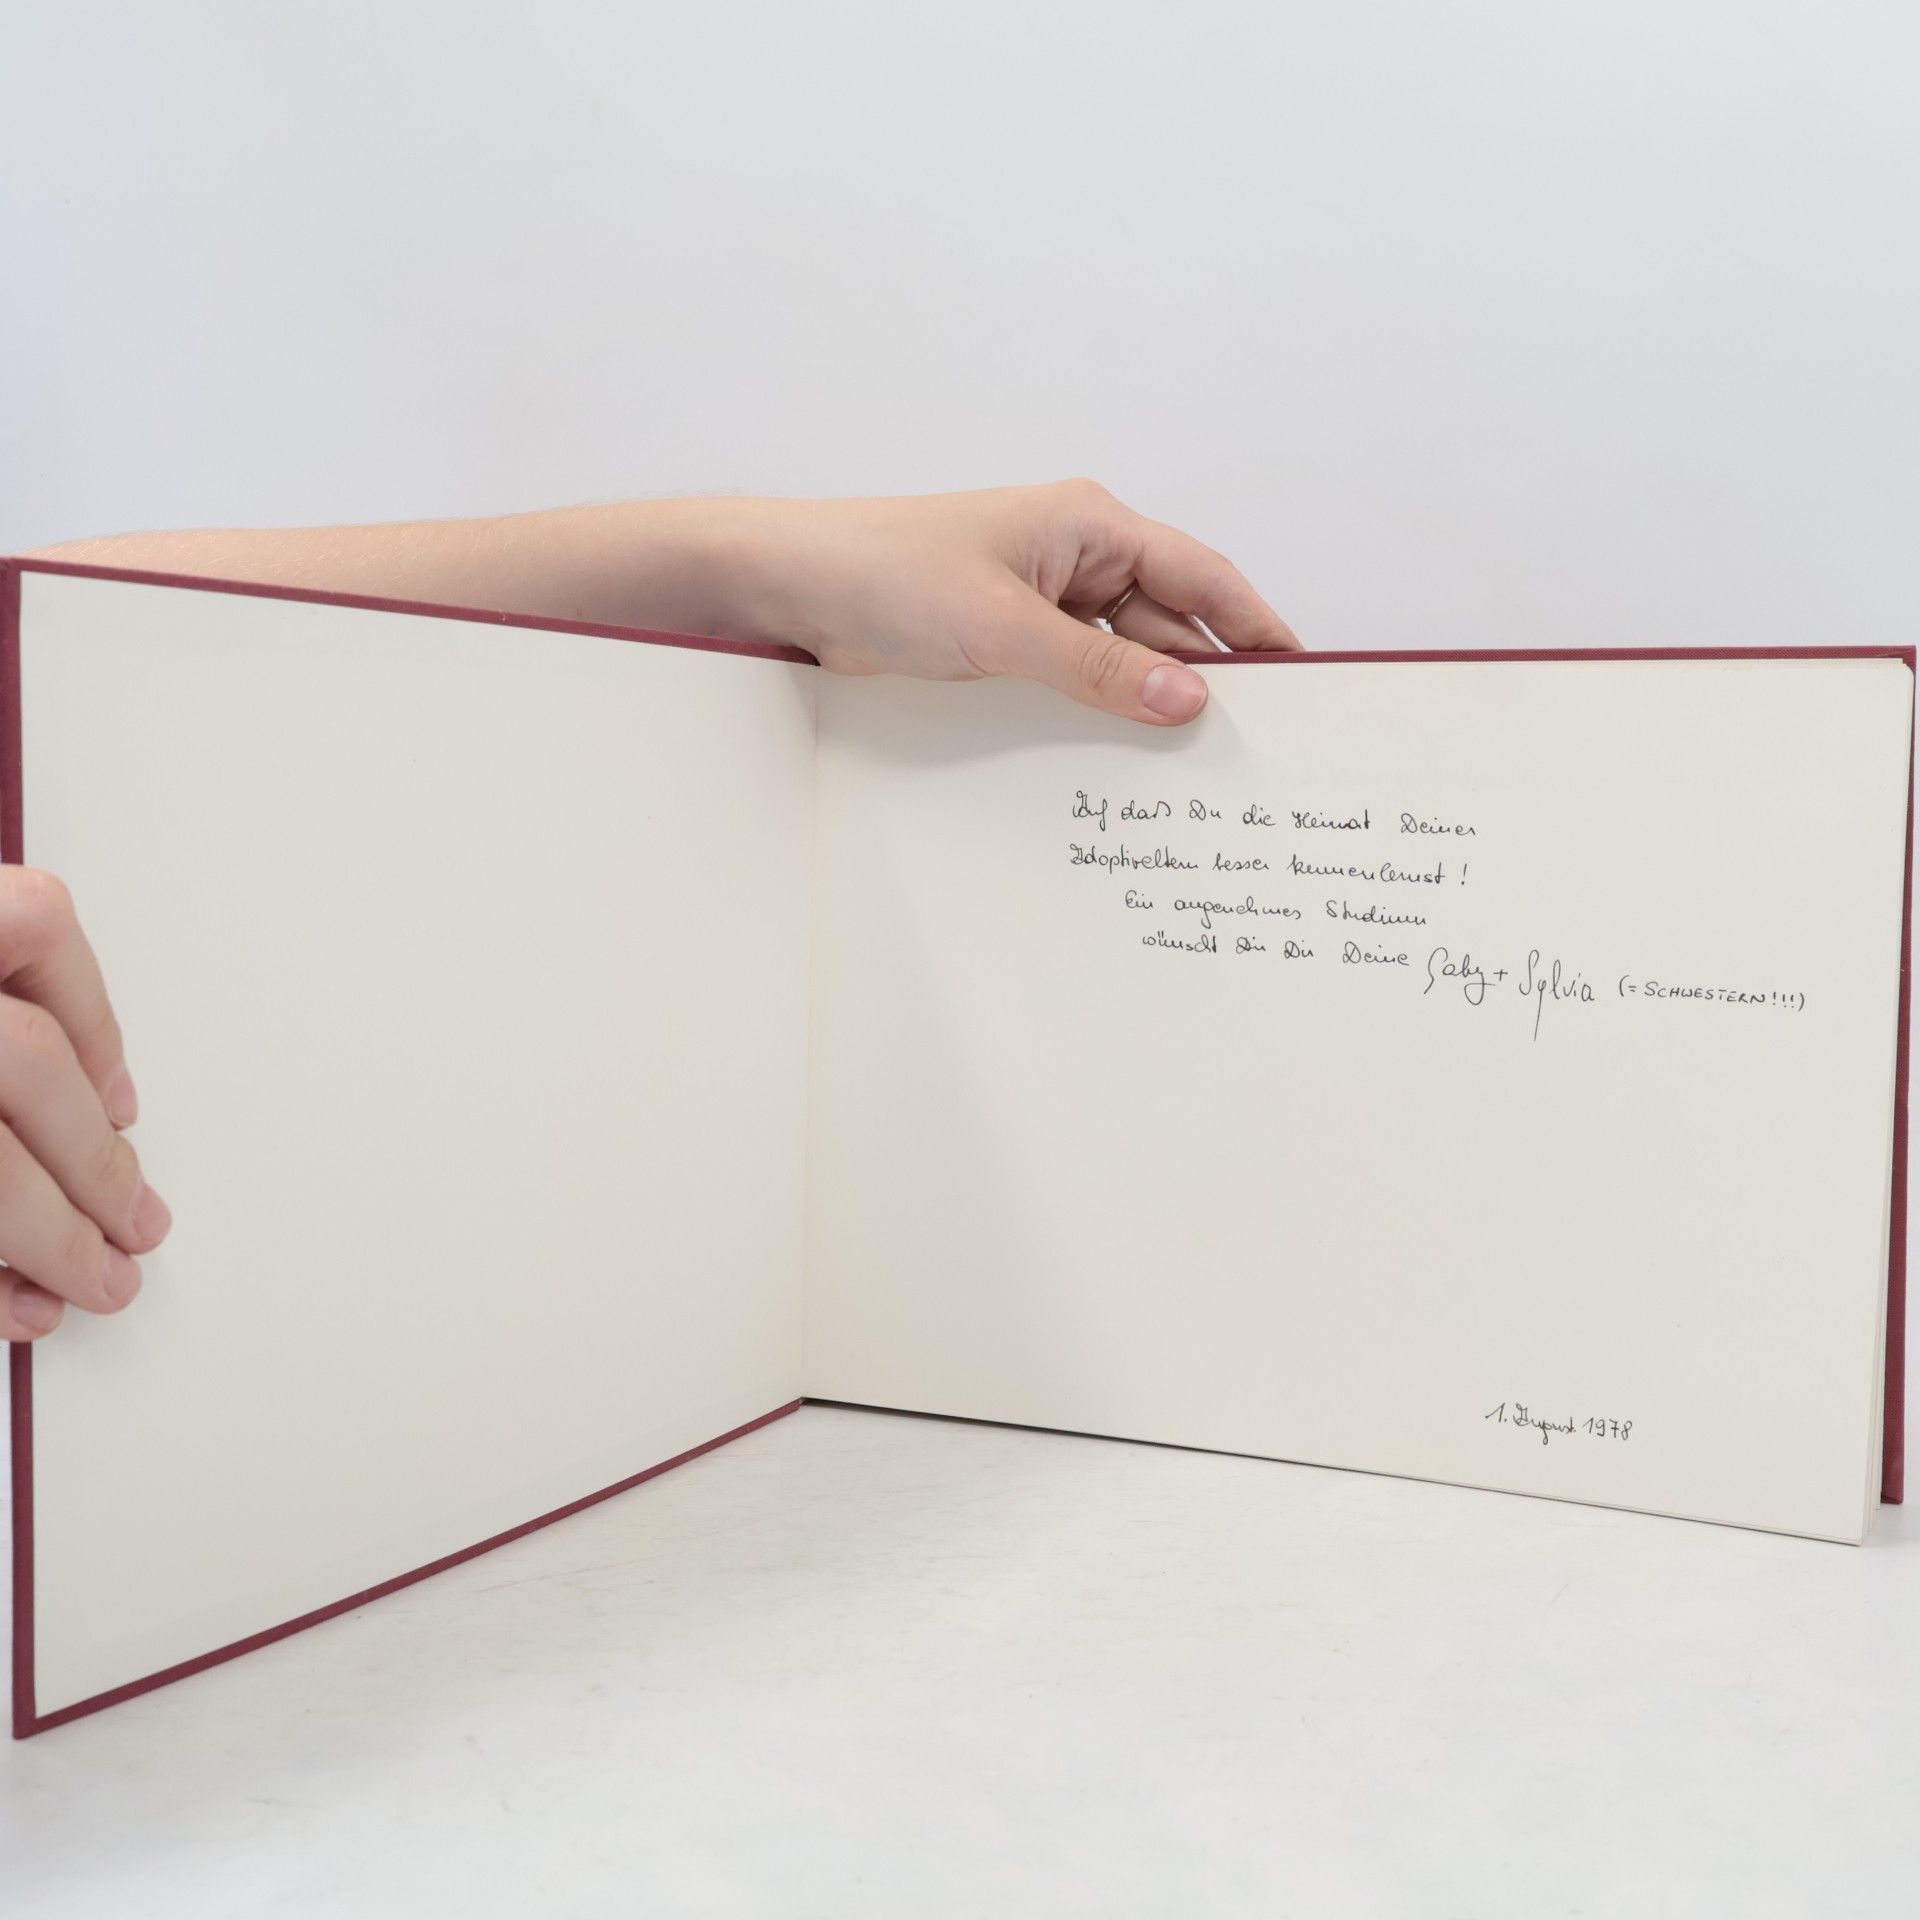 Auf daß Du die Heimat Deiner
Adoptiveltern besser kennenlernst !
Ein angenehmes Studium
wünscht Dir Dir Deine Gaby + Sylvia (= SCHWESTERN!!!)
1. August 1978